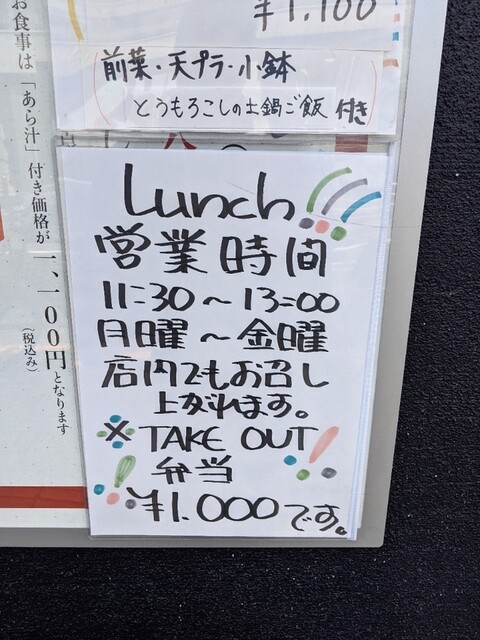 ¥1.100
(前菜・天プラ・小鉢
とうもろこしの土鍋ご飯 付き)
Lunch!!!
営業時間
11:30～13=00
月曜～金曜
店内でもお召し
上がれます。
※TAKE OUT!
!弁当
¥1.000です。
お食事は「あら汁」付き価格が一、一〇〇円となります
(税込み)